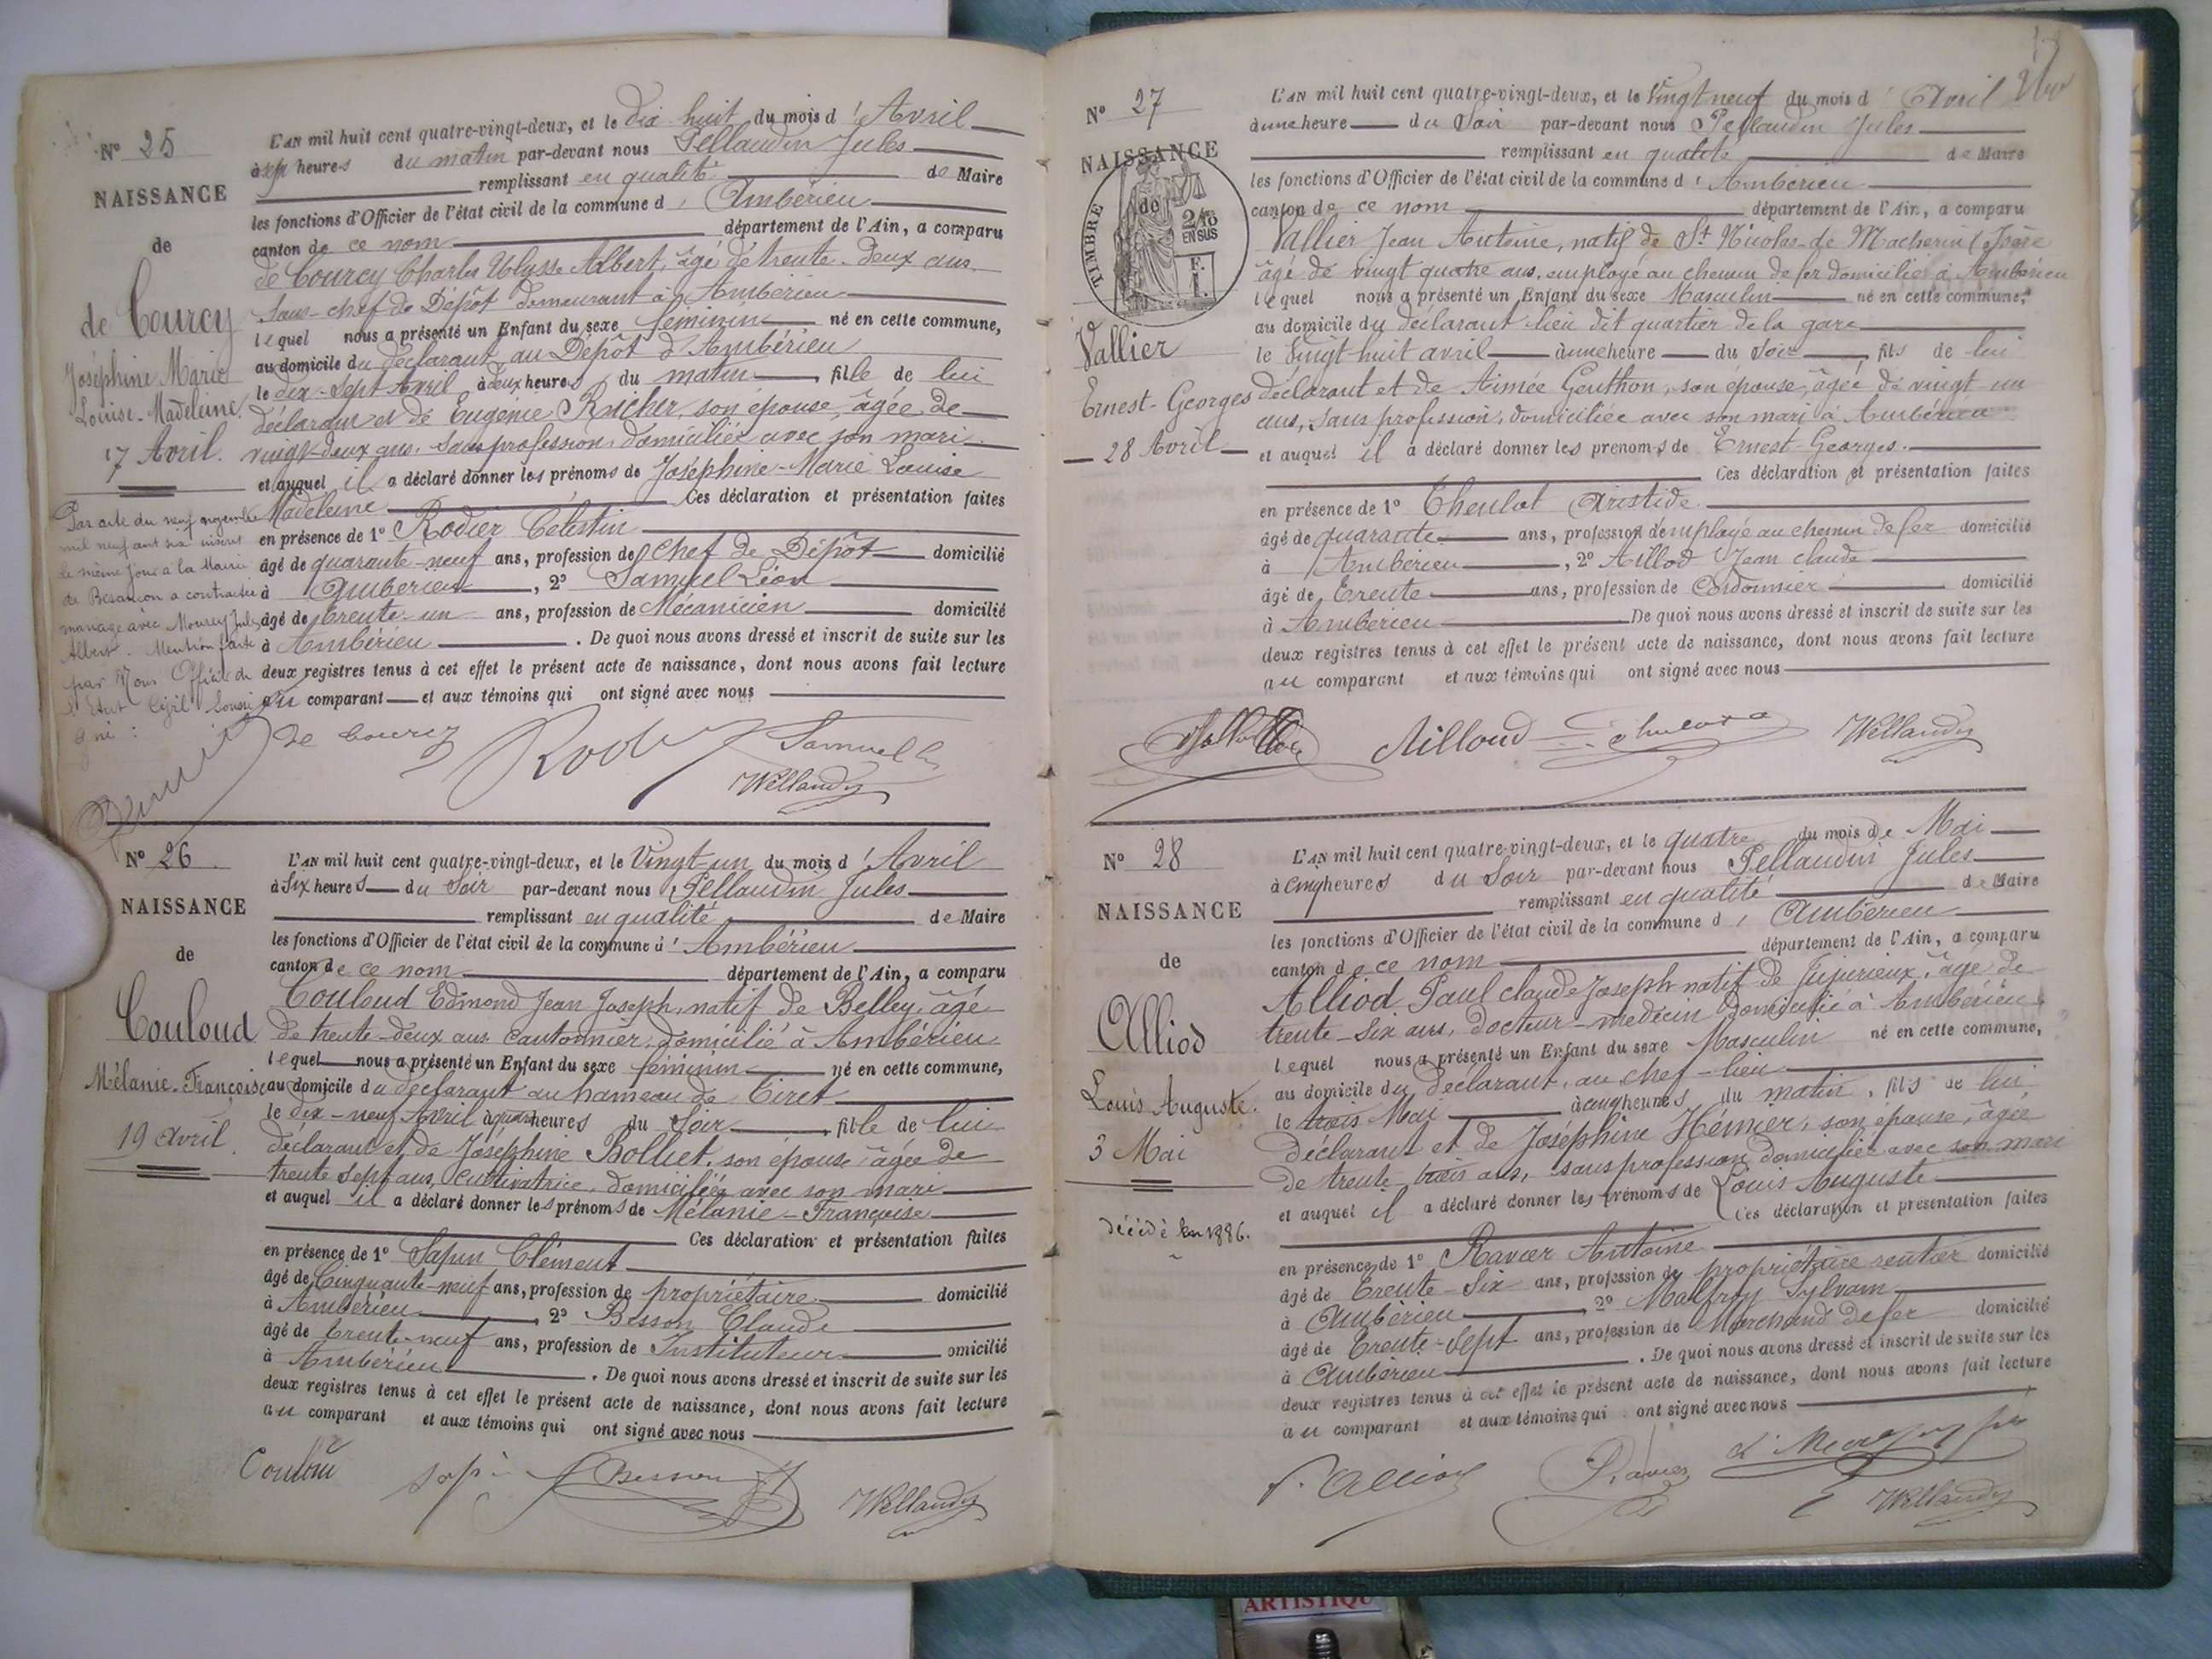 N° 25
NAISSANCE
de
de Courcy
Joséphine Marie
Louise-Madeleine
17 Avril.
Par acte du neuf novembre
mil neuf cent six inscrit
le même jour à la Mairie
de Besançon a contracté
mariage avec Mourey Jules
Albert. Mention faite
par Nous Officier de
l'Etat Civil soussi
gné :
L'AN mil huit cent quatre-vingt-deux, et le dix huit du mois d'Avril
à sept heures du matin par-devant nous Pellaudin Jules
remplissant en qualité de Maire
les fonctions d'Officier de l'état civil de la commune d'Ambérieu
canton de ce nom département de l'Ain, a comparu
de Courcy Charles Ulysse Albert, âgé de trente-deux ans
Sous-chef de Dépôt demeurant à Ambérieu
lequel nous a présenté un Enfant du sexe féminin né en cette commune,
au domicile du déclarant au Dépôt d'Ambérieu
le dix-sept Avril à deux heures du matin, fille de lui
déclarant et de Eugénie Richer, son épouse, âgée de
vingt-deux ans, sans profession, domiciliée avec son mari
et auquel il a déclaré donner les prénoms de Joséphine-Marie Louise
Madeleine Ces déclaration et présentation faites
en présence de 1° Rodier Célestin
âgé de quarante-neuf ans, profession de chef de Dépôt domicilié
à Ambérieu, 2° Samuel Léon
âgé de trente-un ans, profession de Mécanicien domicilié
à Ambérieu. De quoi nous avons dressé et inscrit de suite sur les
deux registres tenus à cet effet le présent acte de naissance, dont nous avons fait lecture
au comparant et aux témoins qui ont signé avec nous
de Courcy Samuel
Pellaudin
N° 26
NAISSANCE
de
Couloud
Mélanie-Françoise
19 Avril.
L'AN mil huit cent quatre-vingt-deux, et le Vingt-un du mois d'Avril
à Six heures du Soir par-devant nous Pellaudin Jules
remplissant en qualité de Maire
les fonctions d'Officier de l'état civil de la commune d'Ambérieu
canton de ce nom département de l'Ain, a comparu
Couloud Edmond Jean Joseph, natif de Belley, âgé
de trente-deux ans cantonnier, domicilié à Ambérieu
lequel nous a présenté un Enfant du sexe féminin né en cette commune,
au domicile du déclarant au hameau de Tiret
le dix-neuf Avril à quatre heures du Soir, fille de lui
déclarant et de Joséphine Bolliet, son épouse âgée de
trente sept ans, cultivatrice, domiciliée avec son mari
et auquel il a déclaré donner les prénoms de Mélanie-Françoise
Ces déclaration et présentation faites
en présence de 1° Sapin Clément
âgé de Cinquante-neuf ans, profession de propriétaire domicilié
à Ambérieu, 2° Besson Claude
âgé de trente-neuf ans, profession de Instituteur omicilié
à Ambérieu. De quoi nous avons dressé et inscrit de suite sur les
deux registres tenus à cet effet le présent acte de naissance, dont nous avons fait lecture
au comparant et aux témoins qui ont signé avec nous
Sapin Besson
Pellaudin
N° 27
NAISSANCE
de
TIMBRE
EN SUS
Vallier
Ernest-Georges
28 Avril
L'AN mil huit cent quatre-vingt-deux, et le Vingt neuf du mois d'Avril
à une heure du Soir par-devant nous Pellaudin Jules
remplissant en qualité de Maire
les fonctions d'Officier de l'état civil de la commune d'Ambérieu
canton de ce nom département de l'Ain, a comparu
Vallier Jean Antoine, natif de St Nicolas-de Macherin (Isère
âgé de vingt quatre ans, employé au chemin de fer domicilié à Ambérieu
lequel nous a présenté un Enfant du sexe Masculin né en cette commune,
au domicile du déclarant lieu dit quartier de la gare
le Vingt-huit avril à une heure du Soir, fils de lui
déclarant et de Aimée Genthon, son épouse, âgée de vingt un
ans, sans profession, domiciliée avec son mari à Ambérieu
et auquel il a déclaré donner les prénoms de Ernest-Georges.
Ces déclaration et présentation faites
en présence de 1° Theulot Aristide
âgé de quarante ans, profession d'employé au chemin de fer domicilié
à Ambérieu, 2° Aillod Jean Claude
âgé de Trente ans, profession de Cordonnier domicilié
à Ambérieu De quoi nous avons dressé et inscrit de suite sur les
deux registres tenus à cet effet le présent acte de naissance, dont nous avons fait lecture
au comparant et aux témoins qui ont signé avec nous
Ailloud Pellaudin
N° 28
NAISSANCE
de
Alliod
Louis Auguste.
3 Mai
décédé en 1886.
L'AN mil huit cent quatre-vingt-deux, et le quatre du mois de Mai
à Cinq heures du Soir par-devant nous Pellaudin Jules
remplissant en qualité de Maire
les fonctions d'Officier de l'état civil de la commune d'Ambérieu
canton de ce nom département de l'Ain, a comparu
Alliod Paul Claude Joseph natif de Jujurieux, âgé de
trente-six ans, docteur-médecin domicilié à Ambérieu
lequel nous a présenté un Enfant du sexe Masculin né en cette commune,
au domicile du déclarant, au chef-lieu
le trois Mai à cinq heures du matin, fils de lui
déclarant et de Joséphine Hémier, son épouse, âgée
de trente-trois ans, sans profession domiciliée avec son mari
et auquel il a déclaré donner les prénoms de Louis Auguste
Ces déclaration et présentation faites
en présence de 1° Ravier Antoine
âgé de Trente-Six ans, profession de propriétaire rentier domicilié
à Ambérieu 2° Malfroy Sylvain
âgé de Trente-Sept ans, profession de Marchand de fer domicilié
à Ambérieu. De quoi nous avons dressé et inscrit de suite sur les
deux registres tenus à cet effet le présent acte de naissance, dont nous avons fait lecture
au comparant et aux témoins qui ont signé avec nous
P. Alliod Ravier
Pellaudin
ARTISTIQU